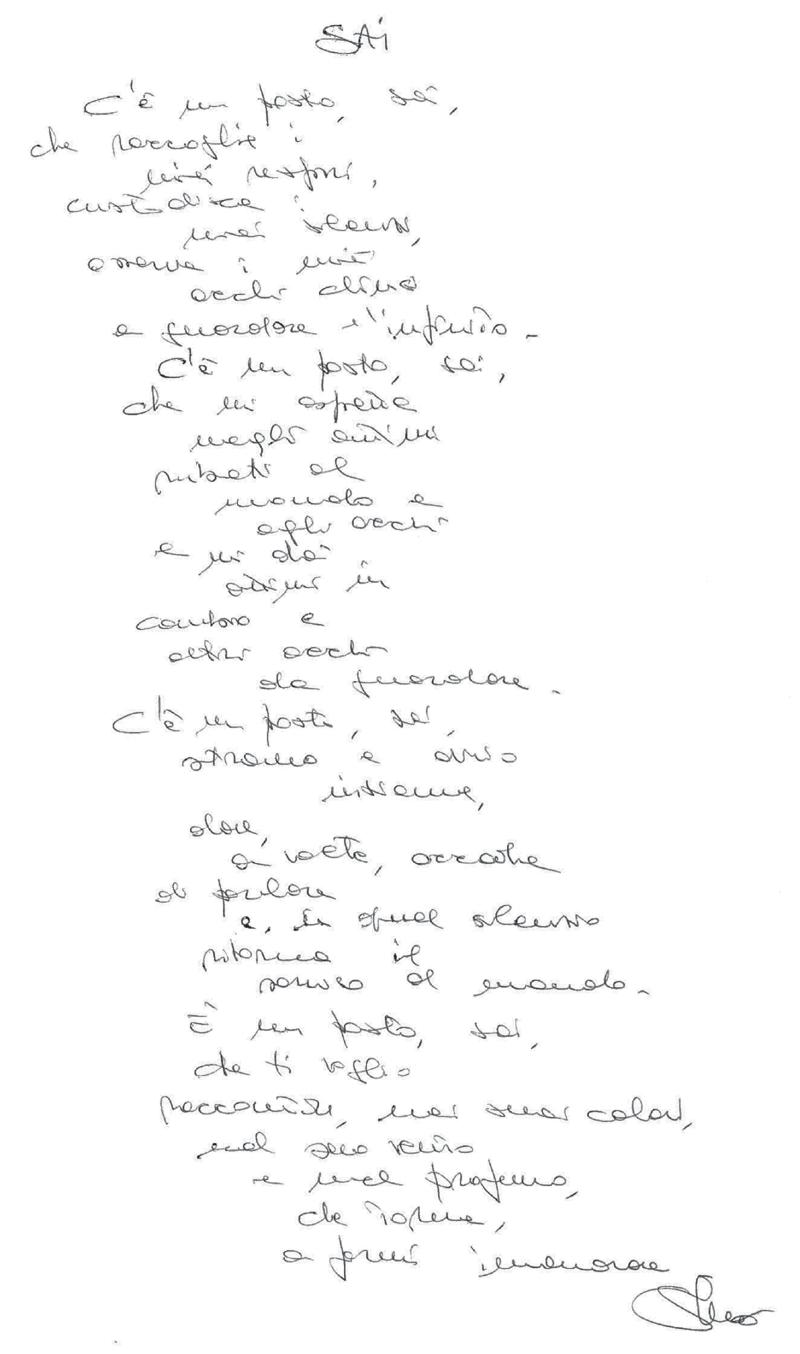 SAi
C'è un posto, sai,
che raccoglie i
miei respiri,
custodisce i
miei silenzi,
osserva i miei
occhi chini
a guardare l'infinito.
C'è un posto, sai,
che mi aspetta
negli attimi
rubati al
mondo e
agli occhi
e mi dà
attimi in
cambio e
altri occhi
da guardare.
C'è un posto, sai,
strano e
insieme,
dove,
a volte, accade
di parlare
e, in quel silenzio
ritorna il
sorriso al mondo.
È un posto, sai,
che ti voglio
raccontare, nei suoi colori,
nel suo vento
e nel profumo,
che torna,
a farmi innamorare